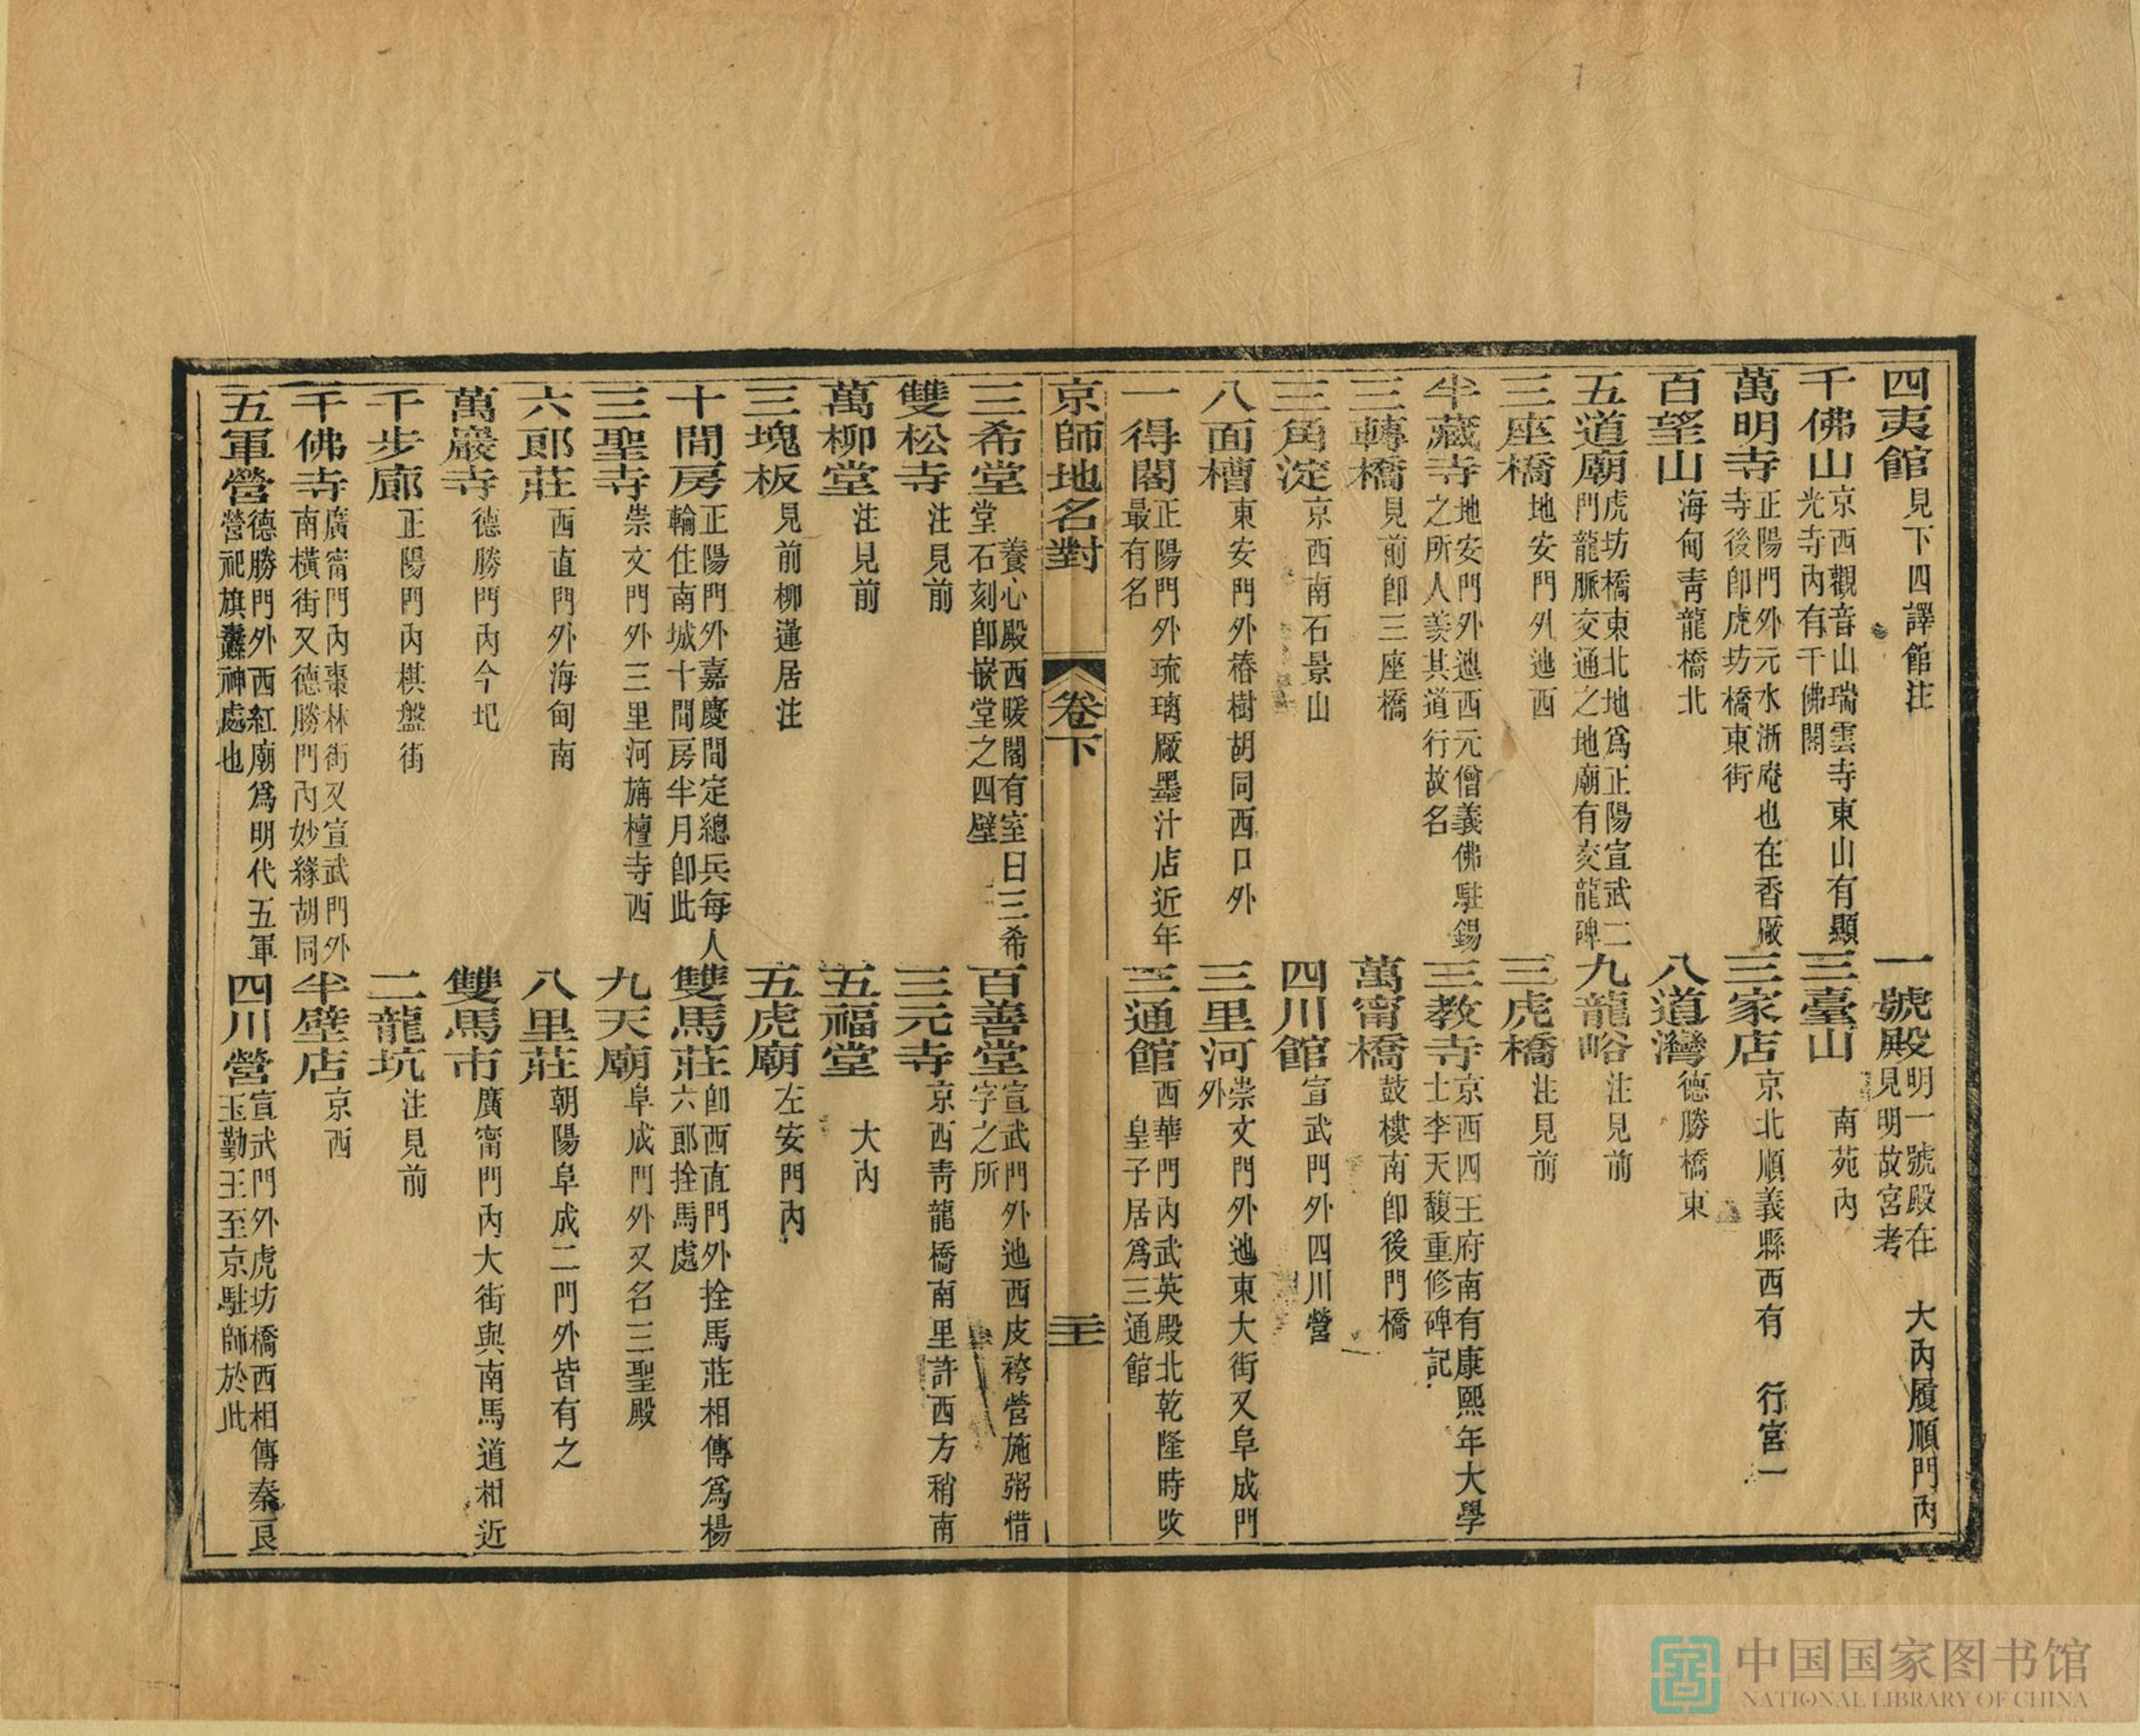 四夷館見下四譯館注　一號殿明一號殿在　大內履順門內見明故宮考
千佛山京西觀音山瑞雲寺東山有顯光寺內有千佛閣　三臺山　南苑內
萬明寺正陽門外元水浙庵也在香廠寺後卽虎坊橋東街　三家店京北順義縣西有　行宮一
百望山海甸靑龍橋北　八道灣德勝橋東
五道廟虎坊橋東北地爲正陽宣武二門龍脈交通之地廟有交龍碑　九龍峪注見前
三座橋地安門外迤西　三虎橋注見前
半藏寺地安門外迤西元僧義佛駐錫之所人羨其道行故名　三教寺京西四王府南有康熙年大學士李天馥重修碑記
三轉橋見前卽三座橋　萬甯橋鼓樓南卽後門橋
三角淀京西南石景山　四川館宣武門外四川營
八面槽東安門外椿樹胡同西口外　三里河崇文門外迤東大街又阜成門外
一得閣正陽門外琉璃廠墨汁店近年最有名　三通館西華門內武英殿北乾隆時改皇子居爲三通館
京師地名對　卷下　三十
三希堂　養心殿西暖閣有室曰三希堂石刻卽嵌堂之四壁　百善堂宣武門外迤西皮袴營施粥惜字之所
雙松寺注見前　三元寺京西靑龍橋南里許西方稍南
萬柳堂注見前　五福堂　大內
三塊板見前柳蓮居注　五虎廟左安門內
十間房正陽門外嘉慶間定總兵每人輪住南城十間房半月卽此　雙馬莊卽西直門外拴馬莊相傳爲楊六郎拴馬處
三聖寺崇文門外三里河旃檀寺西　九天廟阜成門外又名三聖殿
六郎莊西直門外海甸南　八里莊朝陽阜成二門外皆有之
萬巖寺德勝門內今圮　雙馬市廣甯門內大街與南馬道相近
千步廊正陽門內棋盤街　二龍坑注見前
千佛寺廣甯門內棗林街又宣武門外南橫街又德勝門內妙緣胡同　半壁店京西
五軍營德勝門外西紅廟爲明代五軍營祀旗纛神處也　四川營宣武門外虎坊橋西相傳秦良玉勤王至京駐師於此
中国国家图书馆
NATIONAL LIBRARY OF CHINA